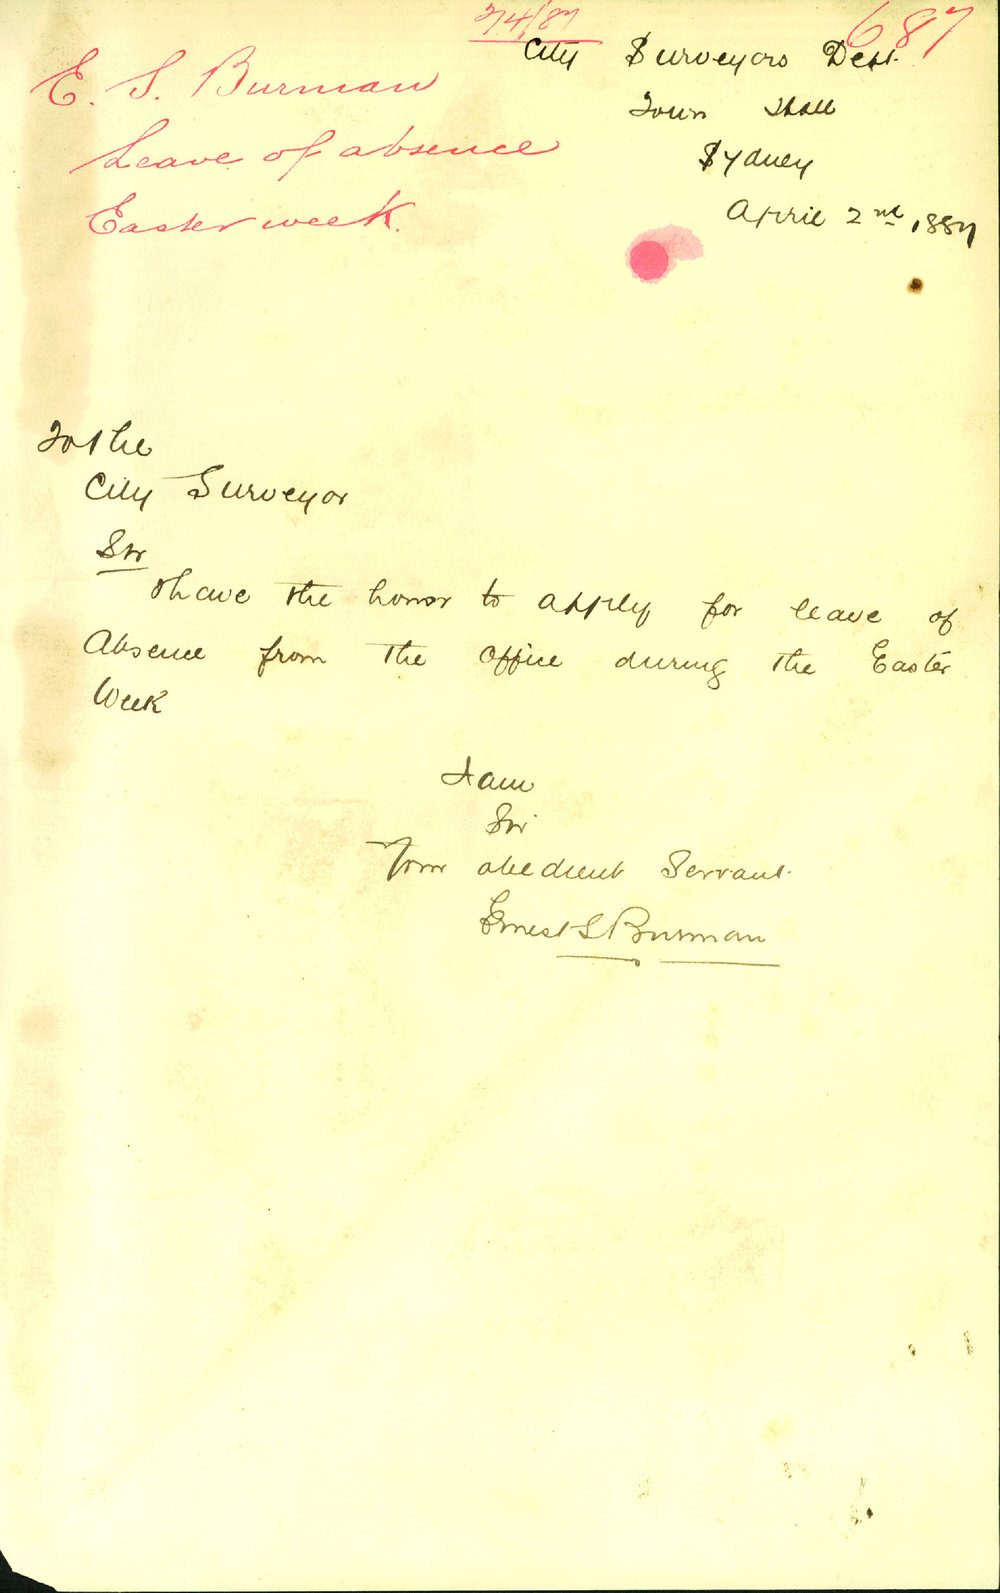 7/4/87
687
E. S. Burman
Leave of absence
Easter week.
City Surveyors Dept.
Town Hall
Sydney
April 2nd, 1887
To the
City Surveyor
Sir
I have the honor to apply for leave of
Absence from the office during the Easter
Week
I am
Sir
Your obedient Servant.
Ernest S Burman